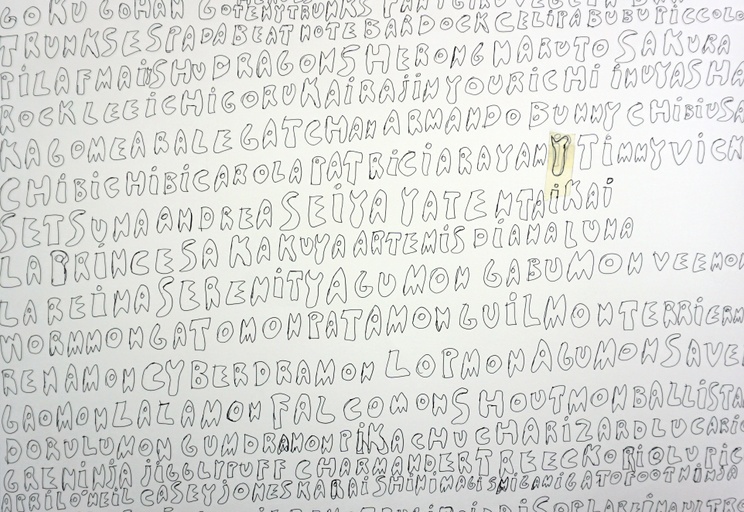 GOKU GOHAN GOTENYTRUNKS
TRUNKSESPADABEATNOTEBARDOCKCELIPABUBUPICCOLO
PILAFMAISHUDRAGONSHERONGNARUTOSAKURA
ROCKLEEICHIGORUKAIRAJINYOURICHI INUYASHA
KAGOMEARALEGATCHANARMANDO BUNNYCHIBIUSA
CHIBICHIBICAROLAPATRICIARAYAMY TIMMYVICK
SETSUNAANDREASEIYA YATENTAIKAI
LAPRINCESAKAKUYAARTEMISDIANALUNA
LAREINASERENITYAGUMON GABUMONVEEMON
WORMMONGATOMONPATAMONGUILMONTERRIERM
RENAMONCYBERDRAMON LOPMONAGUMONSAVE
GAOMONLALAMON FALCOMONSHOUTMONBALLISTA
DORULUMON GUMDRAMONPIKACHUCHARIZARDLUCARIO
GRENINJA JIGGLYPUFF CHARMANDERTREECKORIOLUPIC
APRILONEILCASEYJONESKARAISHINIMAGISMIGAMIGATOFOOTNINJA